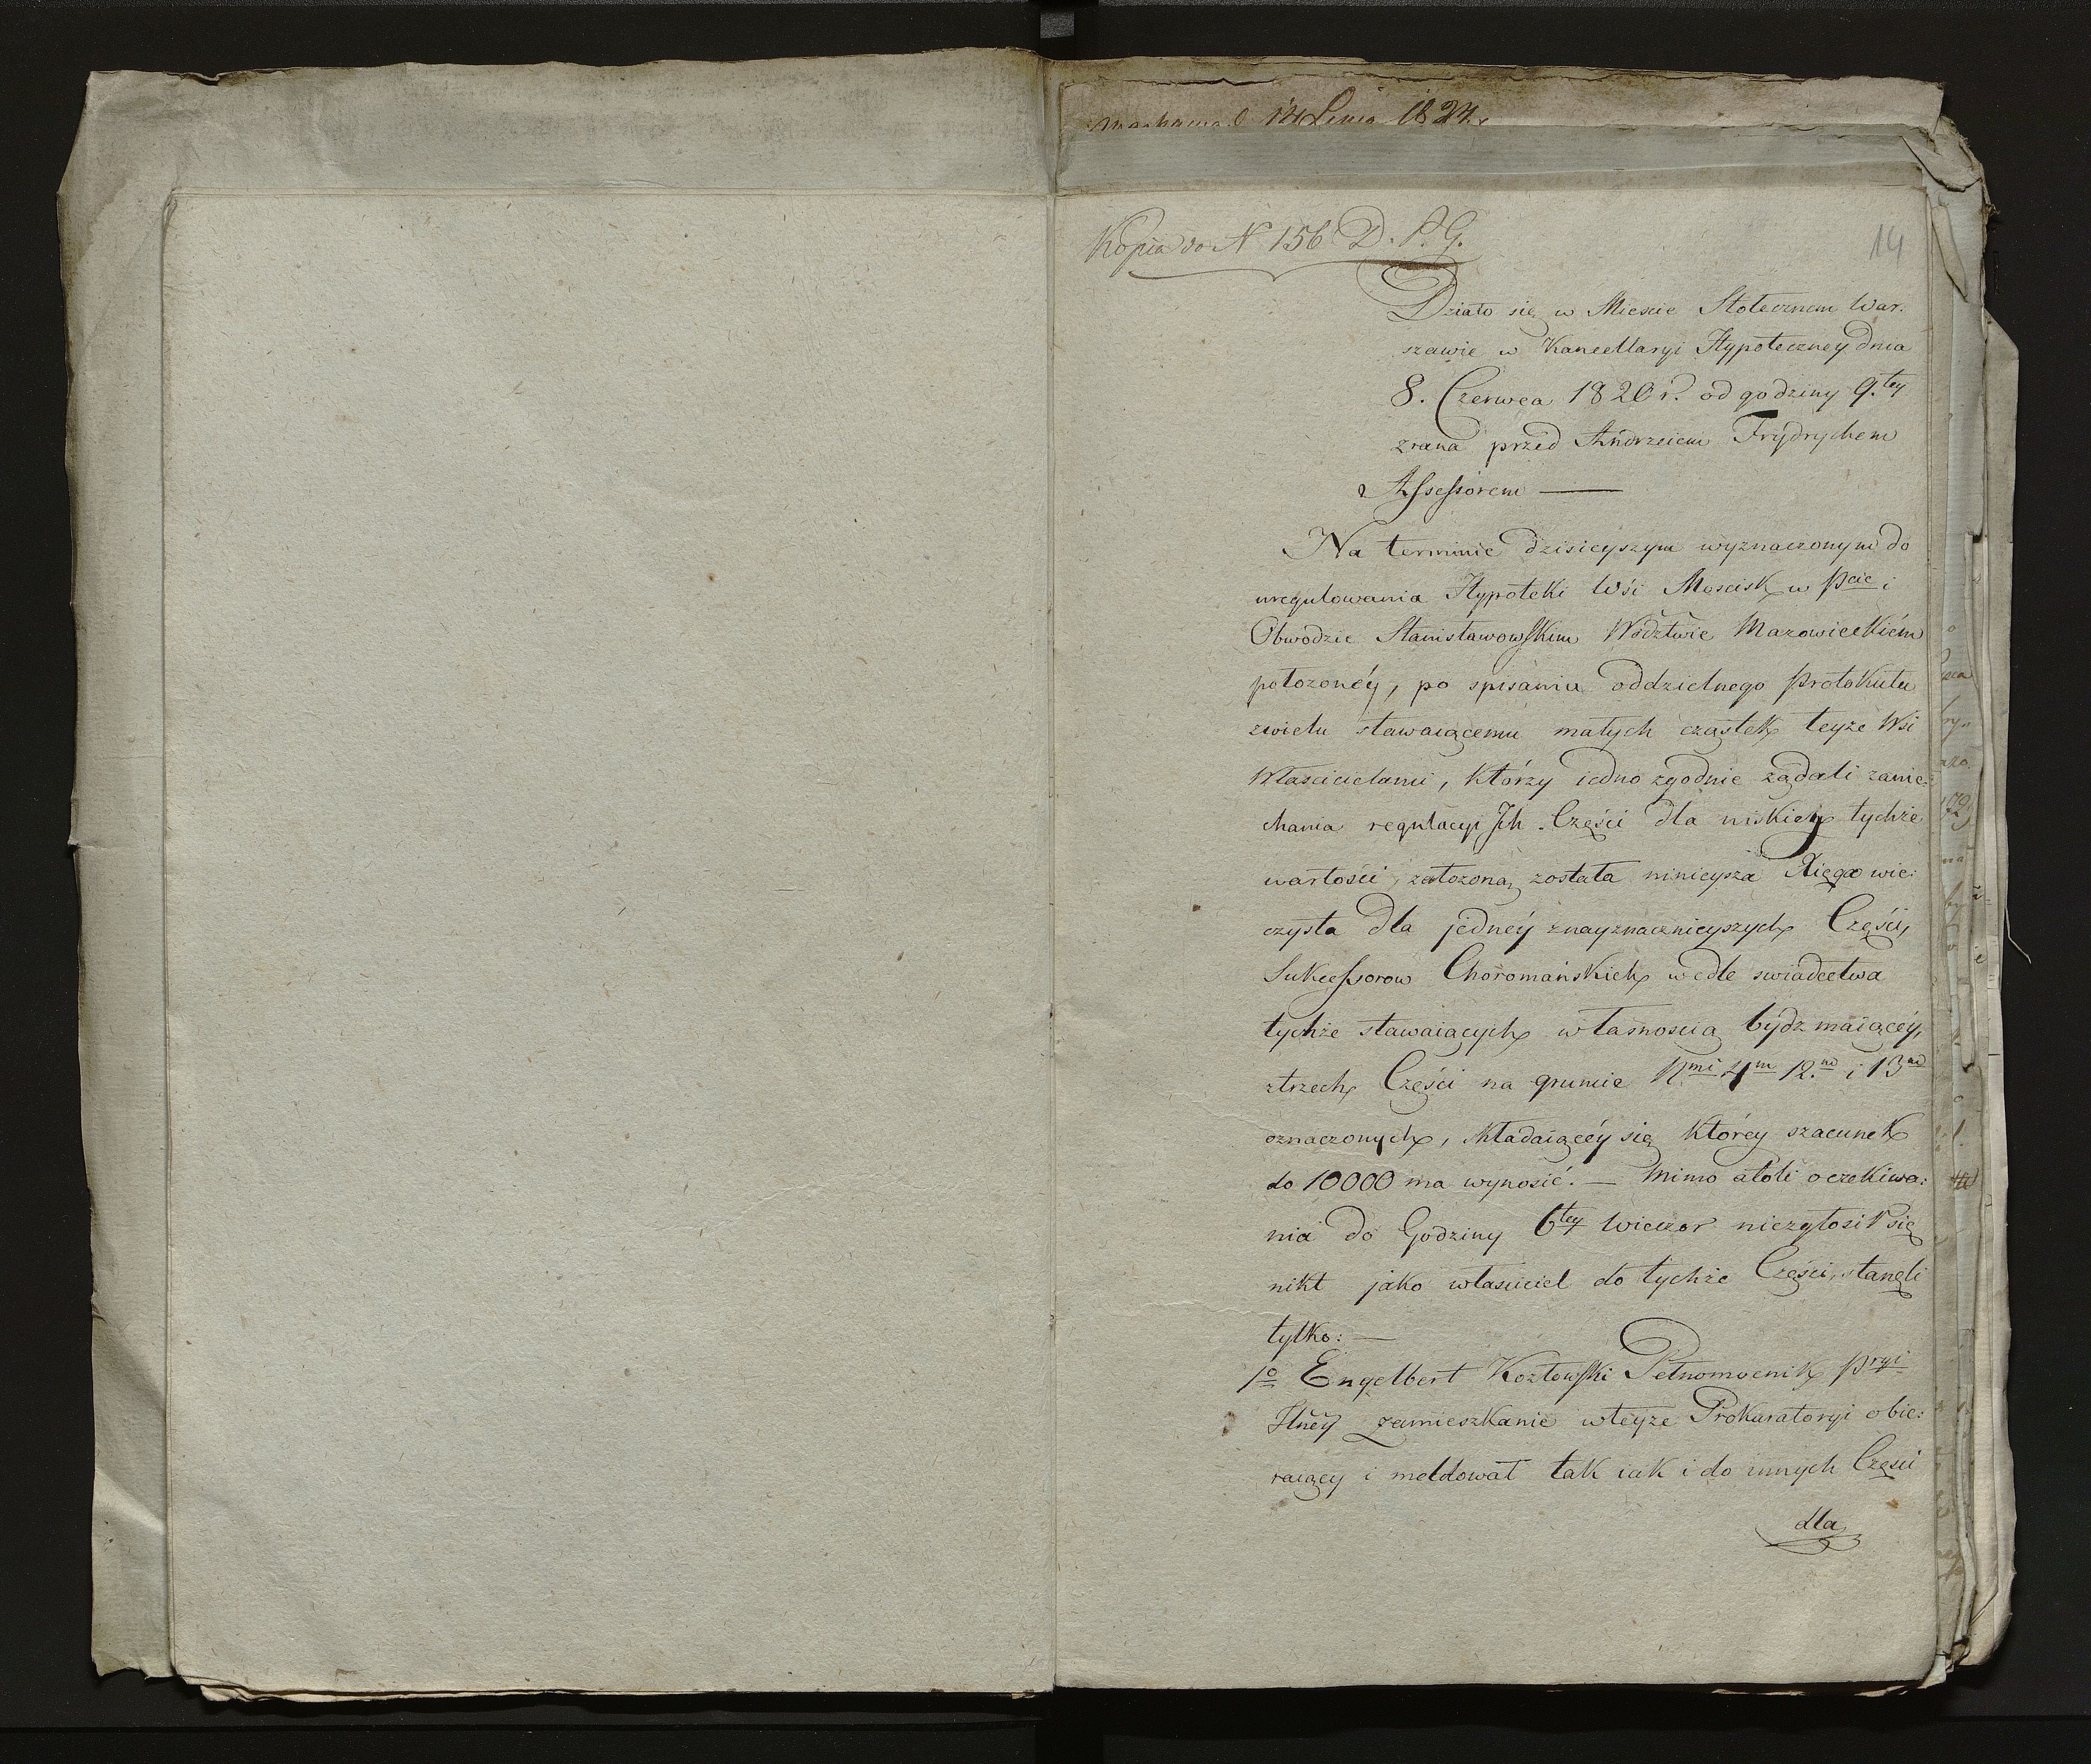 14 Lipca 1824
Kopia do N 156 D. P. G.
14
Działo się w Miescie Stołecznem War:
szawie w Kancellaryi Hypoteczney dnia
8. Czerwca 1820 r. od godziny 9.tey
zrana przed Andrzeiem Frydrychem
Assessorem —
Na terminie dzisieyszym wyznaczonym do
uregulowania Hypoteki Wśi Moscisk w Pcie i
Obwodzie Stanisławowskim Wództwie Mazowieckiém
położonéy, po spisaniu oddzielnego Protokułu
zwielu stawaiącemu małych cząstek teyże Wsi
Właścicielami, którzy iedno zgodnie żądali zanie:
chania regulacyi Jch Części dla niskiey tychże
wartości, założoną została ninieysza Xięga wie:
czysta dla jednéy znayznacznieyszych Części,
Sukcessorow Choromańskich wedle swiadectwa
tychże stawaiących własnoscią bydz maiącéy,
ztrzech Części na grunie Nmi 4m 12.m i 13m
oznaczonych, składaiącéy się którey szacunek
do 10000 ma wynosić. — Mimo atoli oczekiwa:
nia do Godziny 6tey Wieczor niezgłosił się
nikt jako własciciel do tychże Części, stanęli
tylko: —
1o Engelbert Kozłowski Pełnomocnik Pryi
Jlnéy zamieszkanie wteyże Prokuratoryi obie:
raiący i meldował tak iak i do innych Częsci
dla